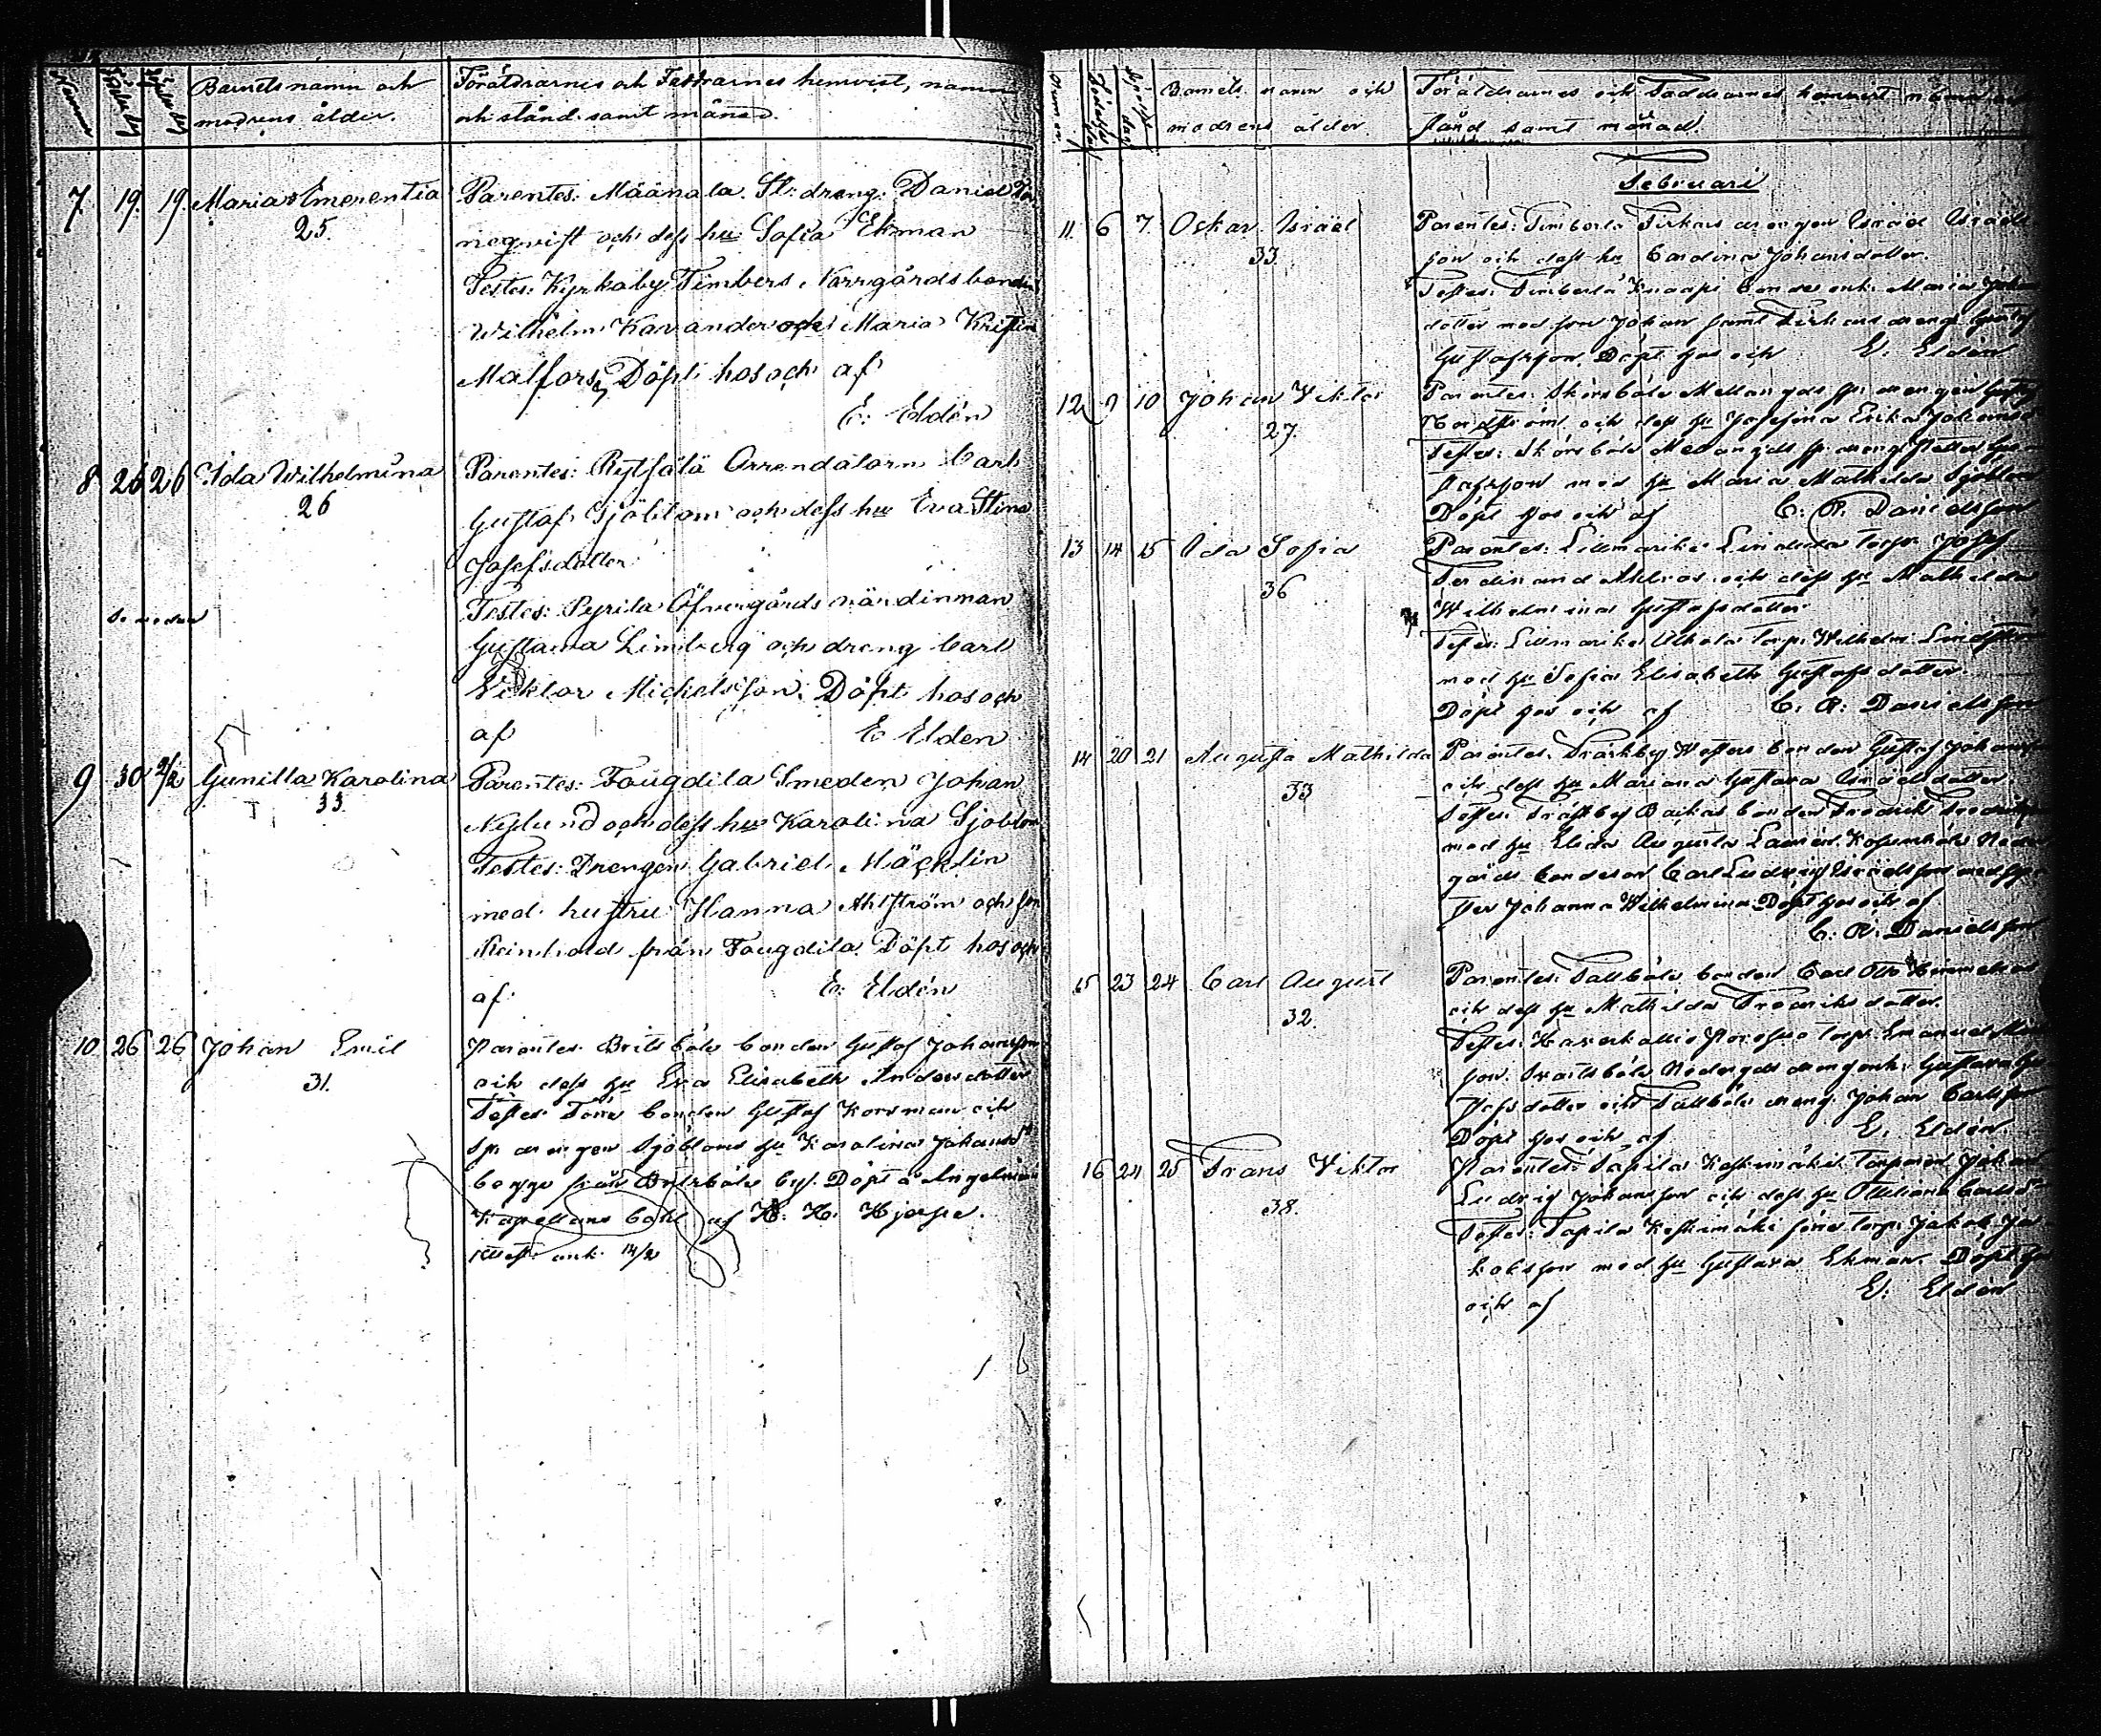 Nummer Födelsedag Döpelsedag Barnets namn och Föräldrarnes och Faddrarnes hemvist, namn
modrens ålder. och stånd samt månad.
7. 19. 19. Maria Emerentia Parentes: Määnala St: dräng: Daniel
25. och dess hu: Sofia Ekman
Testes: Kyrkoby Timbers Norrgårds bonden
Wilhelm Kavander och Maria Kristin
Malfors, Döpt hos och af
E: Eldén
8 26 26 Ida Wilhelmina Parentes: Rytsälä Arrendatorn Carl
26 Gustaf Sjöblom och dess hu Eva Stina
Josefsdotter
Testes: Pyrila Öfvergårds
Gustava Limberg och dräng Carl
Viktor Michelsson. Döpt hos och
af E Elden
9 30 2/2 Gunilla Karolina Parentes: Fougdila Smeden Johan
33. Nylund och dess hu Karolina Sjöblom
Testes: Drengen Gabriel Mäcklin
med hustru Hanna Ahlström och son
Reinhold från Fougdila. Döpt hos och
af. E: Eldén
10 26 26 Johan Emil Parentes. Britsböle bonden Gustaf Johansson
31. och dess hu Eva Elisabeth Andersdotter
Testes: bonden Gustaf Korsman och
Sp. drengen Sjöbloms hu Karolina Johansdr
begge från Britsböle by. Döpt å
Kapellans af K. H. Hjerpe.
ank. 14/2
Barnets namn och Föräldrarnes och Faddrarnes hemvist namn och
modrens ålder. stånd samt månad.
Februari
11. 6 7. Oskar Israël Parentes: Timberla Tirkars drengen Israel Israels
33. son och dess hu Carolina Johansdotter.
Testes: Timberla Knaapi bonde enk. Maria Johans
dotter med son Johan samt Tirkars dreng
Gustafsson. Döpt hos och E: Eldén
12 9 10 Johan Viktor Parentes. Skörsböle Mellangds sp. drengen
27. Nordström och dess hu Josefina Erika
Testes: Skörsböle Mellangds sp. dreng
stafsson med hu Maria Mathilda Sjöblom
Döpt hos och af C: R. Danielsson
13 14 15 Ida Sofia Parentes: Lillmarike torp. Josef
36 Ferdinand och dess hu Mathilda
Wilhelmina Gustafsdotter
Testes: Lillmarike torp. Wilhelm
med hu Sofia Elisabeth Gustafsdotter.
Döpt hos och af C. R: Danielsson
14 20 21 Augusta Mathilda Parentes. Träskby Westers bonden Gustaf Johansson
33 och dess hu Mariana Gustava Israelsdotter.
Testes. Träskby Backas bonden Fredrik
med hu Elida Augusta
gårds bondeson Carl Ludvig Israelsson med
ster Johanna Wilhelmina. Döpt hos och af
C: R: Danielsson
15 23 24 Carl August Parentes: Tallböle bonden Carl Otto
32. och dess hu Mathilda Fredriksdotter.
Testes: torp. Emanuel
son. Nedergds drengenk: Gustava
stafsdotter och Tallböle dreng Johan Carlsson
Döpt hos och af E. Eldén
16 24 25 Frans Viktor Parentes: Tapila Koskimäki torparen Johan
38. Ludvig Johansson och dess hu
Testes: Tapila Koskimäki torp. Jakob Ja
kobsson med hu Gustava Ekman. Döpt hos
och af E: Eldén